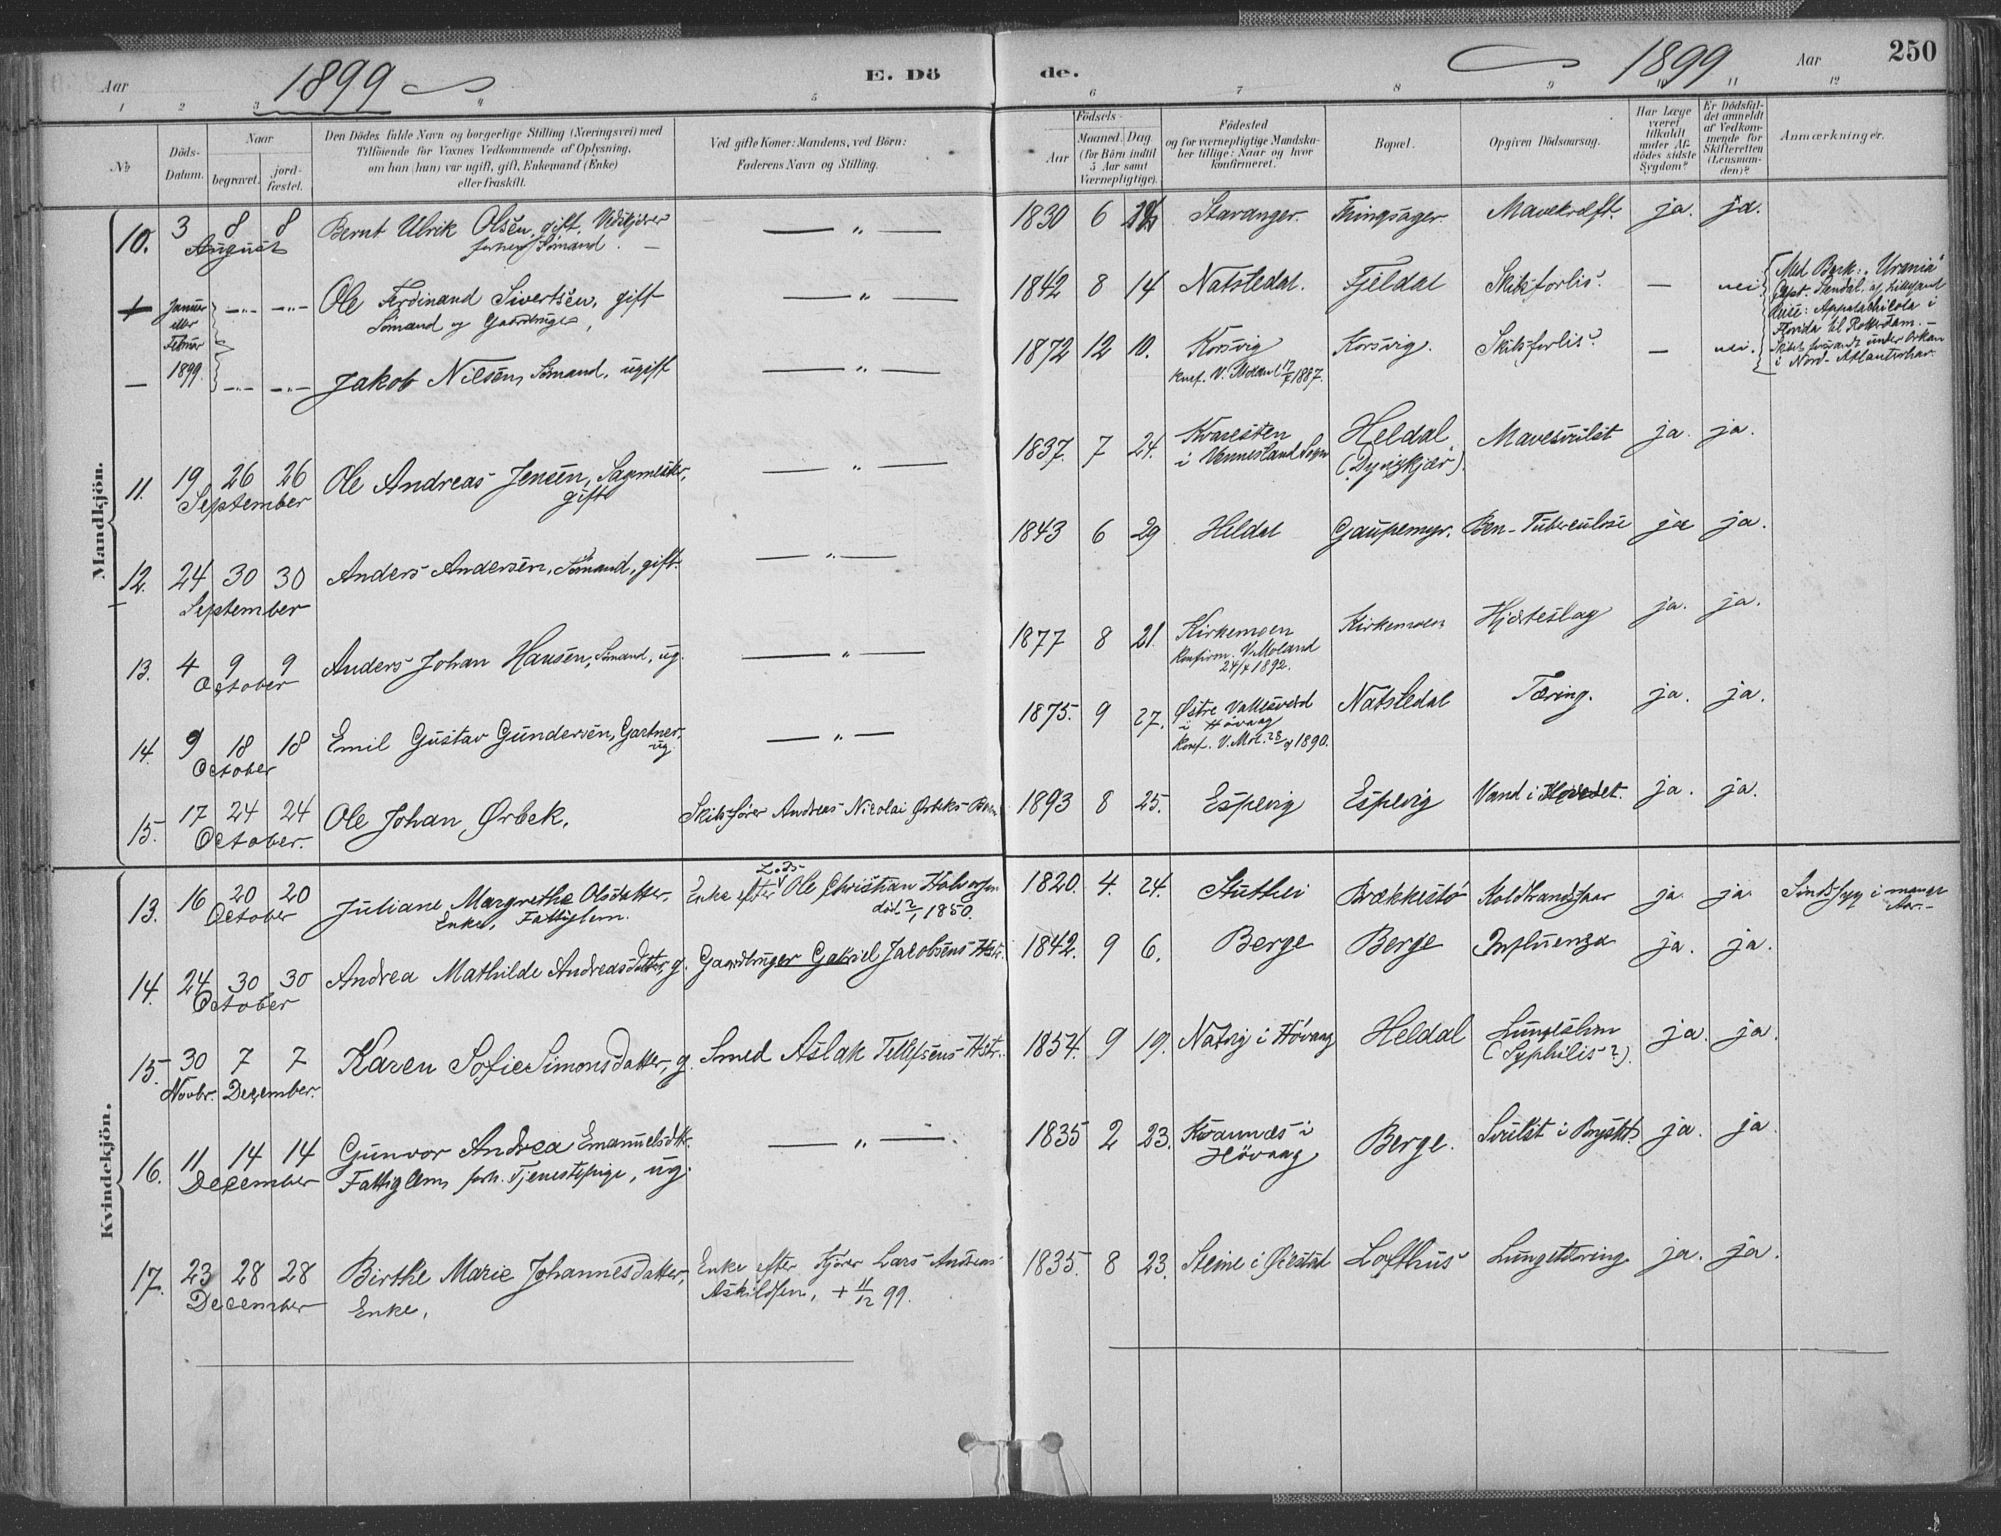 Aar
1899
E. Dö
1 2 3 4 5
№
Döds-
Datum.
Naar
begravet.
jord-
fæstet.
Den Dödes fulde Navn og borgerlige Stilling (Næringsvei) med
Tilföiende för Voxnes Vedkommende af Oplysning,
om han (hun) var ugift, gift, Enkemand (Enke)
eller fraskilt.
Ved gifte Koner: Mandens, ved Börn:
Faderens Navn og Stilling.
Mandkjön.
10. 3 8 8 Bernt Ulrik Olsen, gift,
August Sömand. — — „ —
+ Januar —„— —„— Ole Ferdinand Sivertsen, gift — „ —
eller Sömand og Gaardbruger,
Februar
— 1899. —„— —„— Jakob Nilsen, Sömand, ugift — „ —
11. 19 26 26 Ole Andreas Jensen, Sagmester, — „ —
September gift
12. 24 30 30 Anders Andersen, Sömand, gift. — „ —
September
13. 4 9 9 Anders Johan Hansen, Sömand, ug. — „ —
October
14. 9 18 18 Emil Gustav Gundersen, Gartner, — „ —
October ug.
15. 17 24 24 Ole Johan Ørbek, Skibsfører Andreas Nicolai Ørbeks Barn
October.
Kvindekjön.
13. 16 20 20 Juliane Margrethe Olsdatter, Enke efter Lods Ole Christian Halvorsen
October Enke, Fattiglem. död 1850.
14. 24 30 30 Andrea Mathilde Andreasdatter, g. Gaardbruger Gabriel Jacobsens Hstr.
October
15. 30 7 7 Karen Sofie Simonsdatter, g. Smed Aslak Tellefsens Hstr.
Novbr. Dezember.
16. 11 14 14 Gunvor Andrea Emanuelsdtr. — „ —
Dezember Fattiglem, forh. Tjenestepige, ug.
17. 23 28 28 Birthe Marie Johannesdatter, Enke efter Kjører Lars Andreas
December Enke, Askildsen, + 11/12 99.
de.
1899
Aar
250
6 7 8 9 10 11 12
Födsels-
Aar
Maaned. Dag
(for Börn indtil
5 Aar samt
Værnepligtige).
Födested
og for værnepligtige Mandska-
ber tillige: Naar og hvor
konfirmeret.
Bopæl.
Opgiven Dödsaarsag.
Har Læge
været
tilkaldt
under Af-
dödes sidste
Sygdom?
Er Dödsfal-
det anmeldt
af Vedkom-
mende for
Skifteretten
(Lensman-
den)?
Anmærkninger.
1830 6 Stavanger. Thingsager. Mavekræft. ja. ja.
1842 8 14 Natstedal. Fjeldal Skibsforlis. — nei
Med Bark: „Urania"
Capt. Stendal, af Lillesand
Reise: Appalachicola i
Florida til Rotterdam. —
under Orkan
i Nord-Atlanterhav.
1872 12 10. Korsvig Korsvig. Skibsforlis. — nei.
Knf. V. Moland 1887.
1837. 7 24. Kvarsten Heldal Mavesvulst ja. ja.
i Vennesland Sogn (Dyviskjær).
1843 6 29 Heldal Gaupemyr. Ben-Tuberculose ja ja.
1877 8 21. Kirkemoen Kirkemoen Hjerteslag ja. ja.
Konfirm. V. Moland
24/4 1892.
1875. 9 27. Østre Vallesverd Natstedal Tæring. ja. ja.
i Høvaag
Konf. V. Mol. 1890.
1893 8 25. Espevig Espevig Vand i Hovedet. ja. ja.
1820. 4. 24. Stuthei Brækkestø Koldbrandssaar ja. ja. Sindssyg i mange
Aar.—
1842. 9 6. Berge Berge Influenza ja. ja.
1854. 9 19. Natvig i Høvaag Heldal ja. ja.
(Syphilis?).
1835 2 23. Kvannes i Berge. Svulst i Brystet. ja. ja.
Høvaag
1835. 8 23. Steine i Øiestad Lofthus Lungetæring ja. ja.